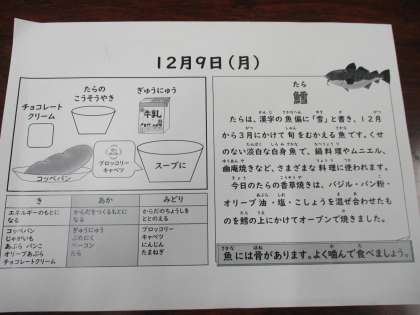 12月9日（月）
チョコレート
クリーム
たらの
こうそうやき
ぎゅうにゅう
牛乳
コッペパン
ブロッコリー
キャベツ
スープに
き
あか
みどり
エネルギーのもとに
なる
からだをつくるもとになる
からだのちょうしを
ととのえる
コッペパン
じゃがいも
あぶら パンこ
オリーブあぶら
チョコレートクリーム
ぎゅうにゅう
ぶたにく
ベーコン
たら
ブロッコリー
キャベツ
にんじん
たまねぎ
たら
鱈
たらは、漢字の魚偏に「雪」と書き、12月
から3月にかけて旬をむかえる魚です。くせ
のない淡白な白身魚で、鍋料理やムニエル、
幽庵焼きなど、さまざまな料理に使われます。
今日のたらの香草焼きは、バジル・パン粉・
オリーブ油・塩・こしょうを混ぜ合わせたも
のを鱈の上にかけてオーブンで焼きました。
魚には骨があります。よく噛んで食べましょう。